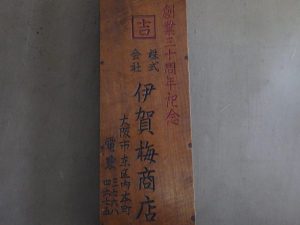 創業三十周年記念
吉
株式会社
伊賀梅商店
大阪市東区内本町
電東